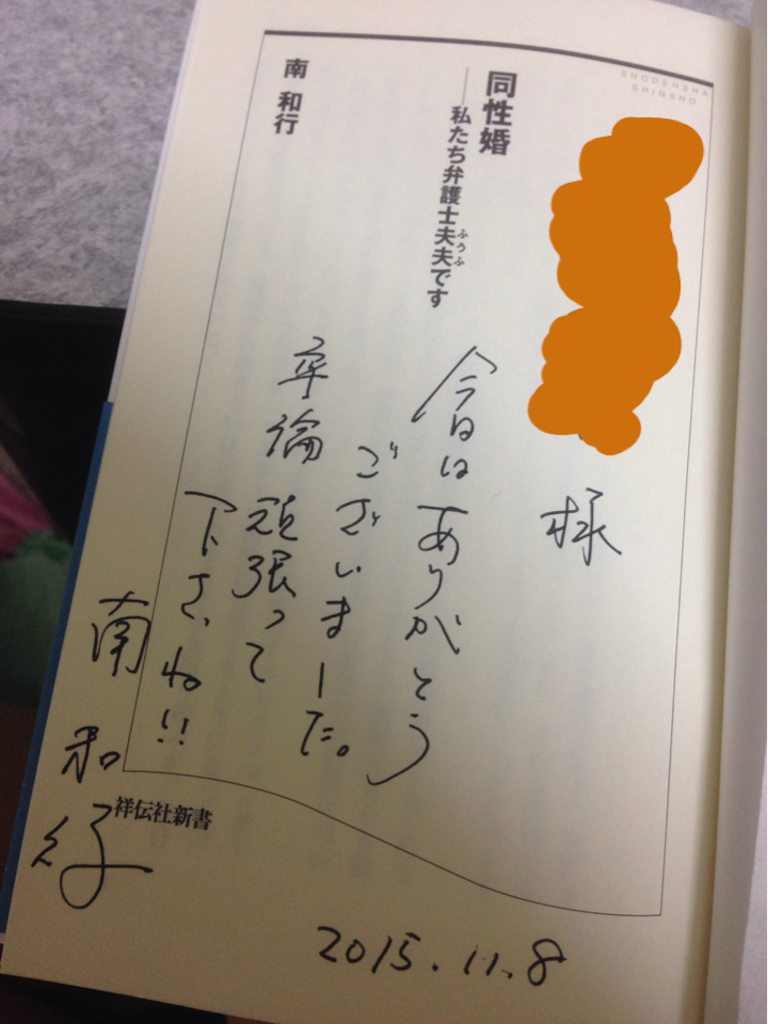 SHODENSHA
SHINSHO
同性婚
――私たち弁護士夫夫です
ふうふ
南 和行
様
今日は ありがとう
ございました。
卒論 頑張って
下さいね!!
南 和行
祥伝社新書
2015.11.8